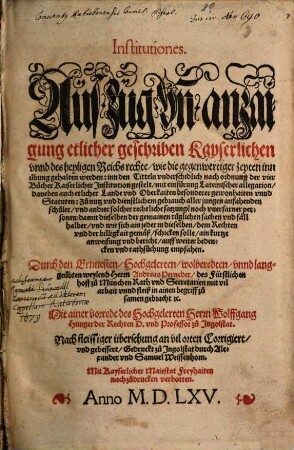 Institutiones.
Auszug vñ anzai
gung etlicher geschriben Kayserlichen
vnnd des heyligen Reichs rechte / wie die gegenwertiger zeyten inn
übung gehalten werden: inn den Titeln vnderschidlich nach ordnung der vier
Bücher Kaiserlicher Institution gestelt / mit einfürung Lateinischer allegation /
daneben auch etlicher Lande vnd Oberkaiten besonderer gewonhaiten vnnd
Statuten: Zů nutz vnd dienstlichem gebrauch aller jungen anfahenden
schůler / vnd ander solcher rechte
halber / vnd wie sich am jeder in derselben / dem Rechten
vnd der billigkait gemäß / schicken solle / ain kurtze
anweisung vnd bericht / auff weiter beden-
cken vnd rathschlůg empfahen.
Durch den Ernuesten / Hochgelerten / wolberedten / vnnd lang-
geliebten weylend Herrn Andreas Perneder / des Fürstlichen
hofs zů München Rath vnd Secretarien mit vil
arbait vnnd fleiß in ainen begriff zů
samen gebracht ꝛc.
Mit ainer vorrede des Hochgelerten Herrn Wolffgang
Hunger der Rechten D. vnd Professor zů Ingolstat.
Nach fleissiger übersehung an vil orten Corrigiert /
vnd gebessert / Gedruckt zů Ingolstat durch Ale-
xander vnd Samuel Weissenhorn.
Mit Kayserlicher Maiestat Freyhaiten
nachzůdrucken verboten.
Anno M. D. LXV.